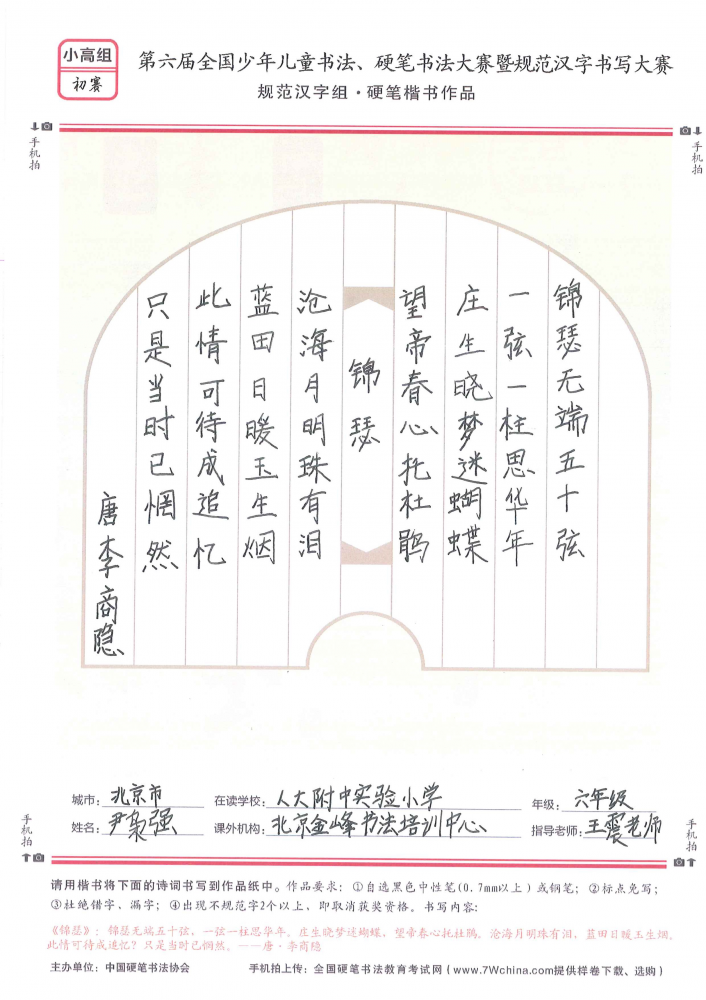 小高组
初赛
第六届全国少年儿童书法、硬笔书法大赛暨规范汉字书写大赛
规范汉字组·硬笔楷书作品
手机拍
手机拍
锦瑟无端五十弦
一弦一柱思华年
庄生晓梦迷蝴蝶
望帝春心托杜鹃
锦瑟
沧海月明珠有泪
蓝田日暖玉生烟
此情可待成追忆
只是当时已惘然
唐李商隐
城市：北京市 在读学校：人大附中实验小学 年级：六年级
姓名：尹枭强 课外机构：北京金峰书法培训中心 指导老师：王震老师
手机拍
手机拍
请用楷书将下面的诗词书写到作品纸中。作品要求：①自选黑色中性笔(0.7mm以上)或钢笔；②标点免写；
③杜绝错字、漏字；④出现不规范字2个以上，即取消获奖资格。书写内容：
《锦瑟》：锦瑟无端五十弦，一弦一柱思华年。庄生晓梦迷蝴蝶，望帝春心托杜鹃。沧海月明珠有泪，蓝田日暖玉生烟。
此情可待成追忆？只是当时已惘然。——唐·李商隐
主办单位：中国硬笔书法协会 手机拍上传：全国硬笔书法教育考试网(www.7Wchina.com提供样卷下载、选购)